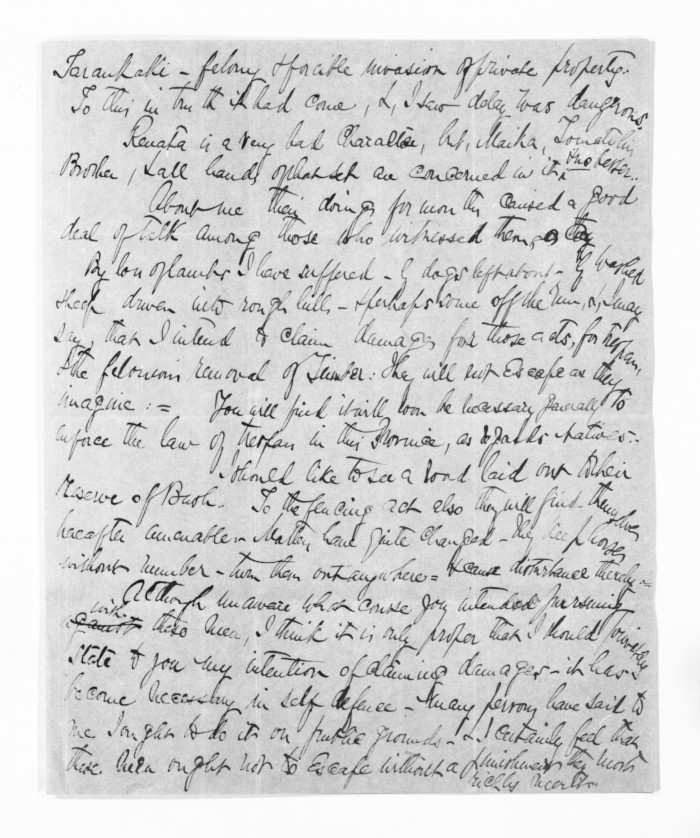 Tarankaki - felony & forcible invasion of private property.
To this in truth it had come, &, I saw delay was dangerous.
Renata is a very bad Character, but, Maika, Tomati his
Brother, & all hands of that set are concerned in it, & no better.
About me their doings for months caused a good
deal of talk among those who witnessed them
By loss of lambs I have suffered - by dogs left about - by washed
sheep driven into rough hills - & perhaps some off the Run, &, I may
say, that I intend to claim damages for those acts, for trespass,
& the felonious removal of Timber: They will not Escape as they
imagine := You will find it will soon be necessary generally to
enforce the law of trespass in this Province, as regards Natives:-
I should like to see a road laid out to their
reserve of Bush. To the fencing act also they will find themselves
hereafter amenable - Matters have quite changed - they keep horses
without number - turn them out anywhere = & cause disturbance thereby :=
Although unaware what course you intended pursuing
with
against these men, I think it is only proper that I should privately
state to you my intention of claiming damages - it has
become necessary in self defence - Many persons have said to
me I ought to do it on public grounds - & I certainly feel that
these men ought not to Escape without a punishment they most
richly merit.